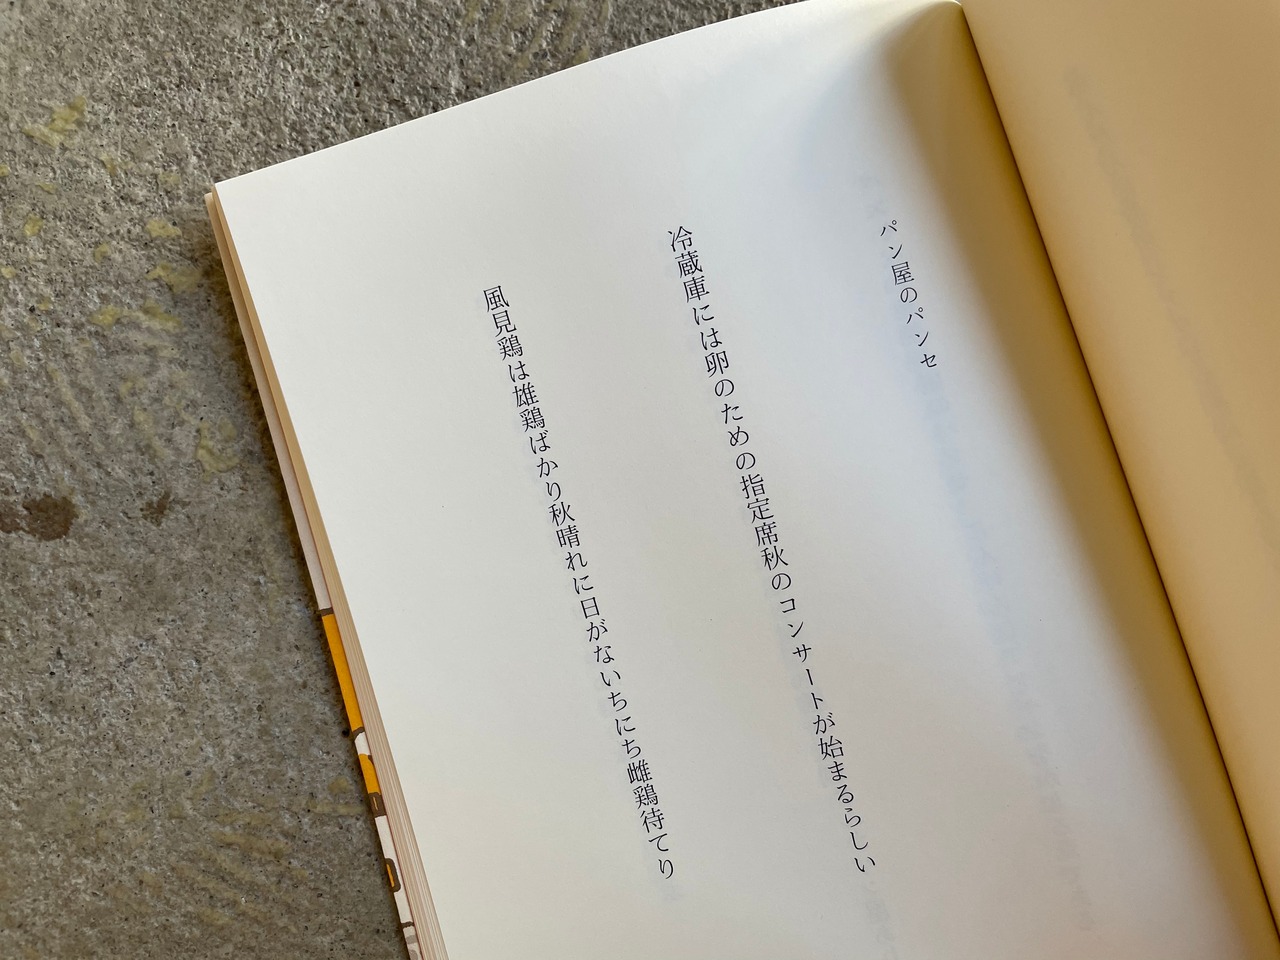 パン屋のパンセ
冷蔵庫には卵のための指定席秋のコンサートが始まるらしい
風見鶏は雄鶏ばかり秋晴れに日がないちにち雌鶏待てり